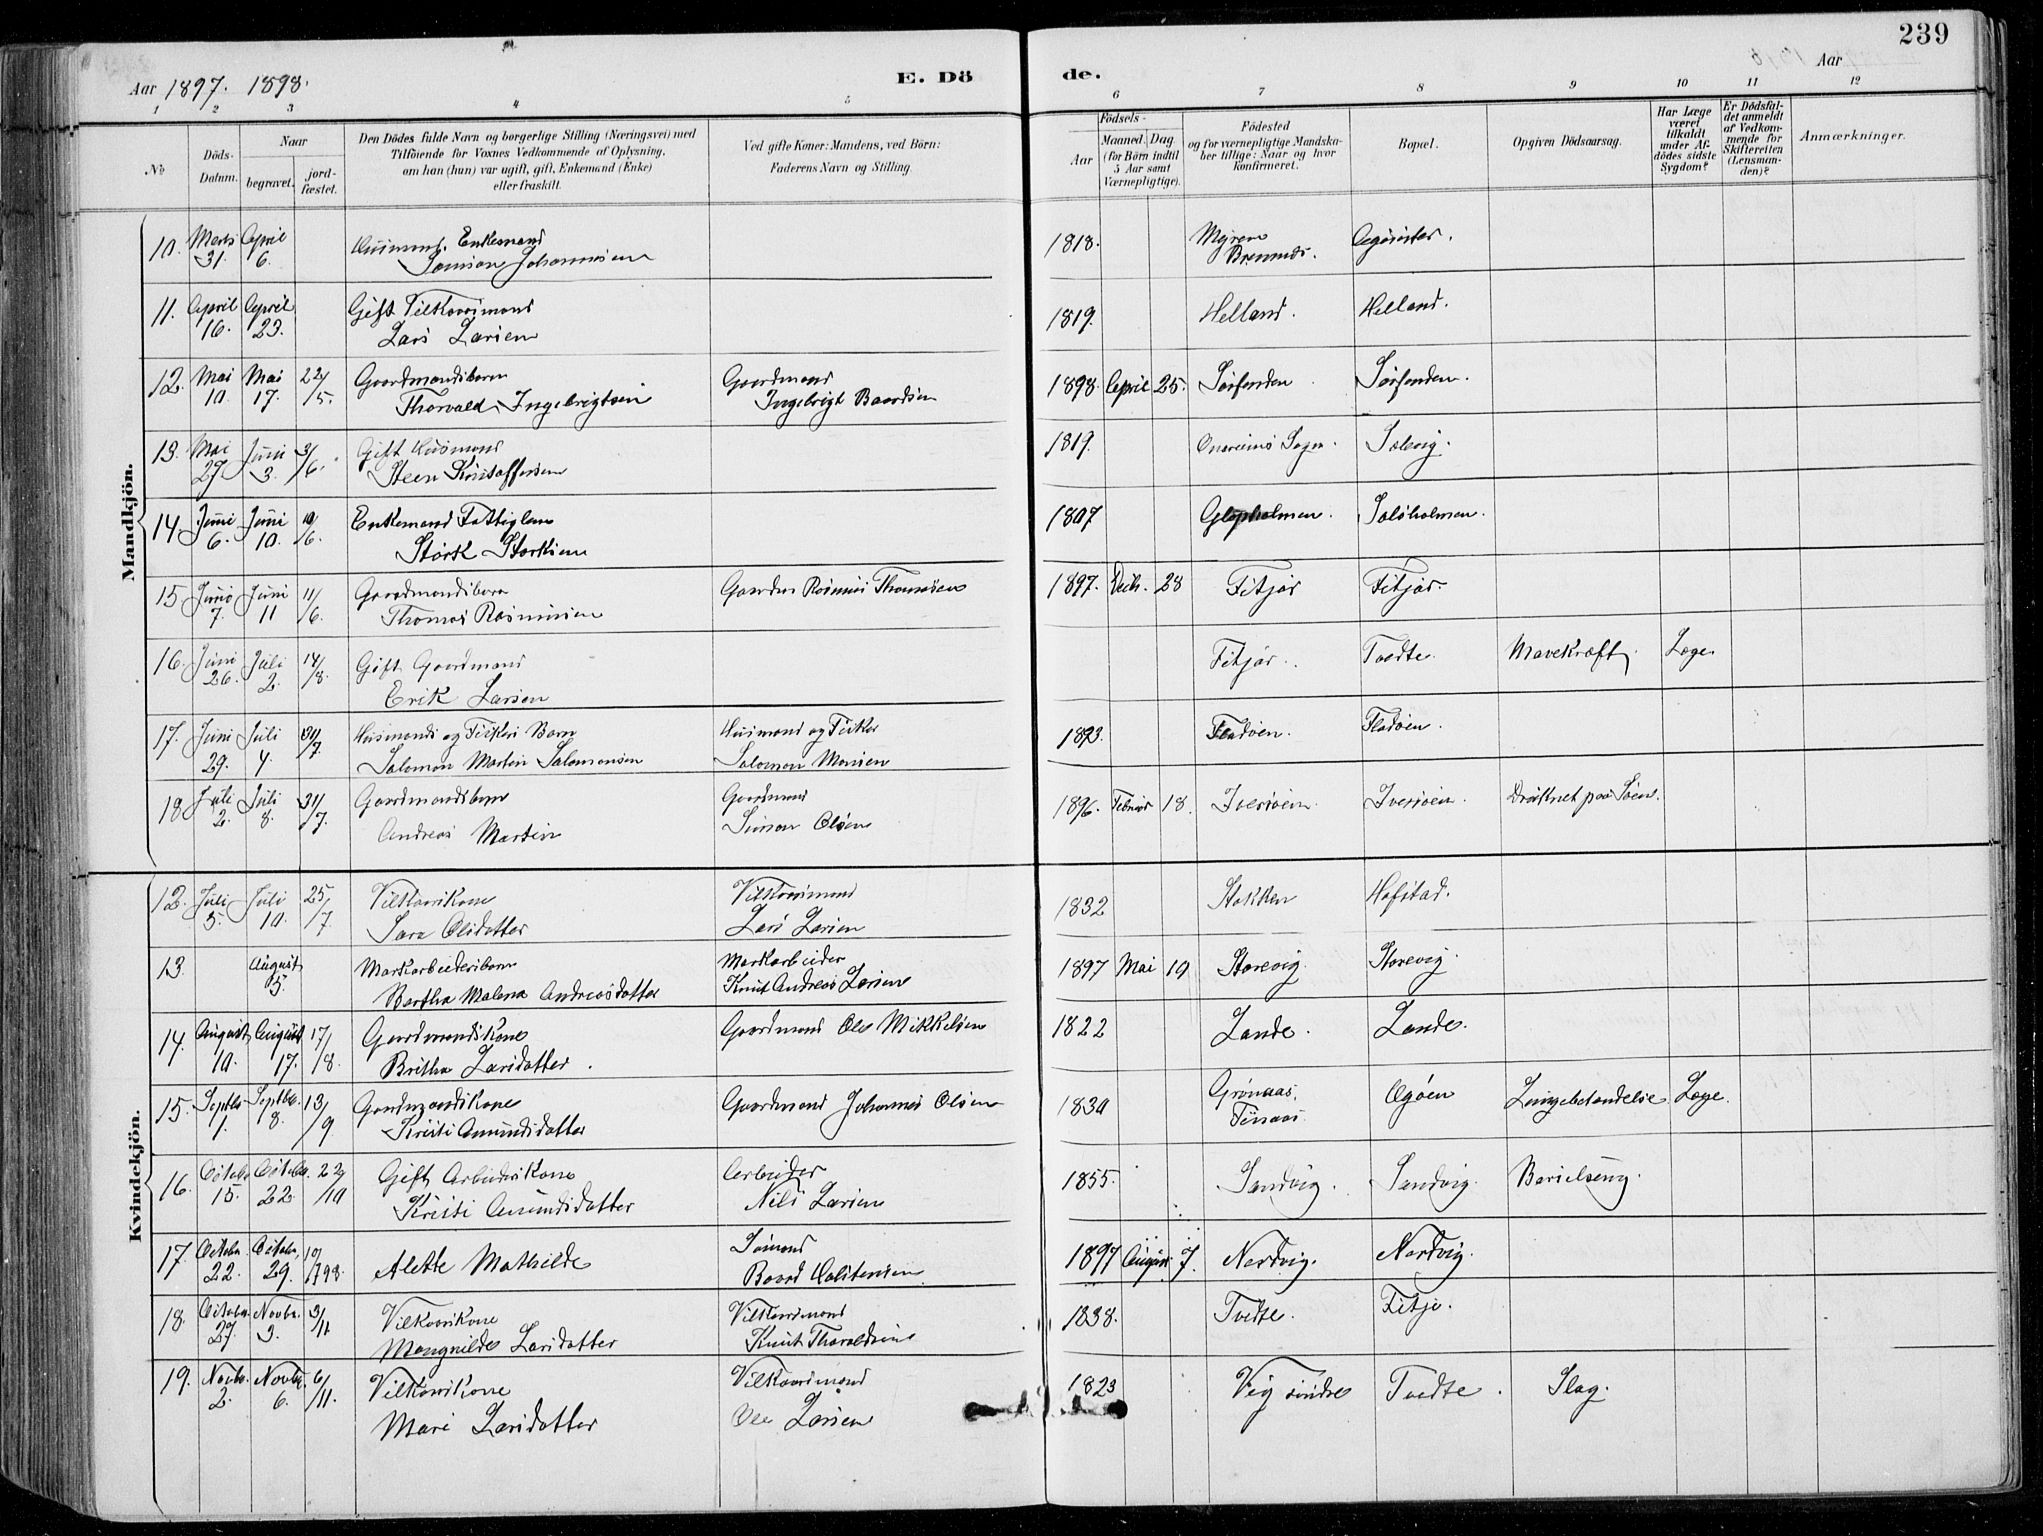 239
Aar 1897. 1898.
E. Dö
de.
Aar
1 2 3 4 5 6 7 8 9 10 11 12
No
Döds-
Datum.
Naar
begravet.
jord-
fæstet.
Den Dödes fulde Navn og borgerlige Stilling (Næringsvei) med
Tilföiende for Voxnes Vedkommende af Oplysning,
om han (hun) var ugift, gift, Enkemand (Enke)
eller fraskilt.
Ved gifte Koner: Mandens, ved Börn:
Faderens Navn og Stilling.
Födsels-
Aar
Maaned. Dag.
(for Börn indtil
5 Aar samt
Værnepligtige).
Födested
og for værnepligtige Mandska-
ber tillige: Naar og hvor
konfirmeret.
Bopæl.
Opgiven Dödsaarsag.
Har Læge
været
tilkaldt
under Af-
dödes sidste
Sygdom?
Er Dödsfal-
det anmeldt
af Vedkom-
mende for
Skifteretten
(Lensman-
den)?
Anmærkninger.
Mandkjön.
10. Marts 31. April 6. Husmand. Enkemand 1818. Myren
Johannesen
11. April 16. April 23. Gift Vilkaarsmand 1819. Helland. Helland.
Lars Larsen
12. Mai 10. Mai 17. 22/5. Gaardmandsbarn Gaardmand 1898. April 25. Sørfonden Sørfonden.
Thorvald Ingebrigtsen Ingebrigt Baardsen
13. Mai 27. Juni 3. 3/6. Gift Husmand 1819. Sogn. Solevig.
Steen Kristoffersen
14. Juni 6. Juni 10. 10/6. Enkemand Fattiglem 1807
Størk Størksen
15 Juni 7. Juni 11 11/6. Gaardmandsbarn Gaardm Rasmus Thomasen 1897. Decb. 28 Fitjar Fitjar.
Thomas Rasmusen
16. Juni 26. Juli 2. 14/8. Gift Gaardmand Fitjar. Tvedte. Mavekræft Læge
Erik Larsen
17. Juni 29. Juli 4. 31/7. Husmands og Fiskers Barn Husmand og Fisker 1893. Fladøen. Fladøen.
Salomon Martin Salomonsen Salomon Monsen
18 Juli 2. Juli 8. 31/7. Gaardmandsbarn Gaardmand 1896. Februar 18. Iversøen. Iversøen. Druknet paa Søen.
Andreas Martin Simon Olsen
Kvindekjön.
12. Juli 5. Juli 10. 25/7. Vilkaarskone Vilkaarsmand 1832 Stokken Hofstad.
Sara Olsdatter Lars Larsen
13. August 5. Markarbeidersbarn Markarbeider 1897 Mai 19 Storevig. Storevig.
Bertha Malena Andreasdatter Knut Andreas Larsen
14. August 10. August 17. 17/8. Gaardmandskone Gaardmand Ole Mikkelsen 1822 Lande. Lande.
Britha Larsdatter.
15. Septbr 1. Septbr. 8. 13/9 Gaardmandskone Gaardmand Johannes Olsen 1830 Grønaas, Agøen Lungebetændelse. Læge.
Kristi Amundsdatter
16. October 15. October 22. 22/10 Gift Arbeiderskone Arbeider 1855. Sandvig. Sandvig. Barselseng.
Kristi Amundsdatter Nils Larsen
17. October 22. October 29. Alette Mathilde Sømand 1897 August 7. Nordvig. Nordvig.
Baard
18. October 27. Novbr. 3. 3/11 Vilkaarskone Vilkaarsmand 1838. Tvedte. Fitje.
Mangnilde Larsdatter Knut Thoraldsen
19. Novbr. 2. Novbr. 6. 6/11. Vilkaarskone Vilkaarsmand 1823 Vig søndre Tvedte. Slag.
Mari Larsdatter Ole Larsen